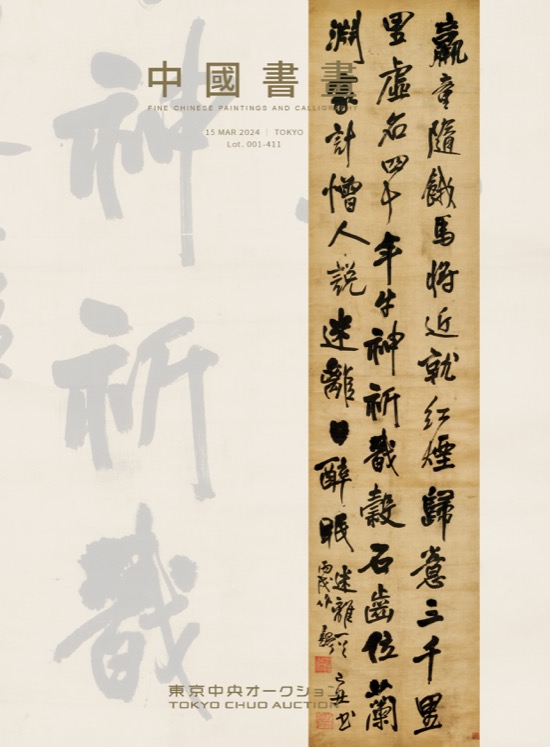 中國書畫
FINE CHINESE PAINTINGS AND CALLIGRAPHY
15 MAR 2024 | TOKYO
Lot. 001-411
羸童隨餓馬將近就紅煙歸意三千里
里虛名四十年牛神祈戩穀石齒位蘭
計憎人説迷離醉眠
丙戌
迷離
神祈戩
東京中央オークション
TOKYO CHUO AUCTION